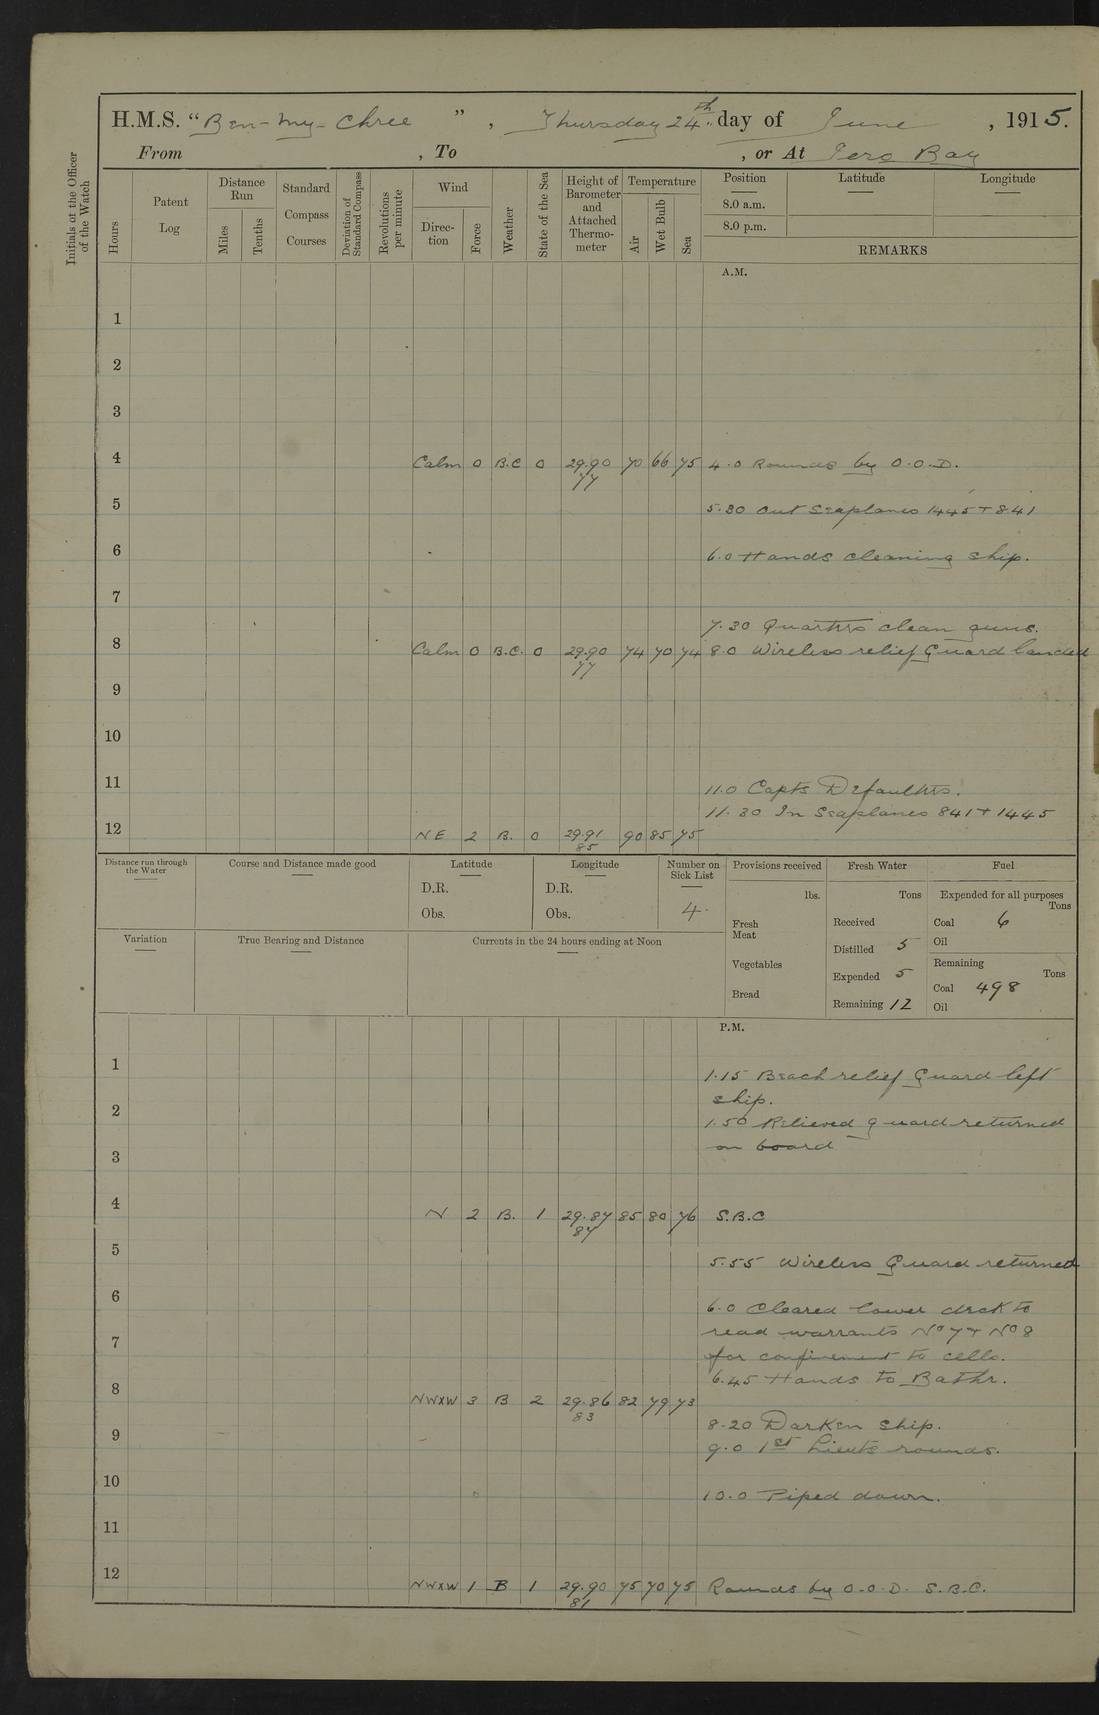 H.M.S. "Ben-my-Chree", Thursday 24th. day of June, 1915.
From , To , or At Iero Bay
Initials of the Officer of the Watch
Hours
Patent Log
Distance Run
Miles
Tenths
Standard Compass Courses
Deviation of Standard Compass
Revolutions per minute
Wind
Direction
Force
Weather
State of the Sea
Height of Barometer and Attached Thermometer
Temperature
Air
Wet Bulb
Sea
Position Latitude Longitude
8.0 a.m.
8.0 p.m.
REMARKS
A.M.
1
2
3
4 Calm 0 B.C 0 29.90 70 66 75 4.0 Rounds by O.O.D.
77
5 5.30 Out Seaplanes 1445 + 841
6 6.0 Hands cleaning ship.
7
7.30 Quarters clean guns.
8 Calm 0 B.C. 0 29.90 74 70 74 8.0 Wireless relief Guard landed
77
9
10
11 11.0 Capts Defaulters.
11.30 In Seaplanes 841 + 1445
12 NE 2 B. 0 29.91 90 85 75
85
Distance run through the Water
Course and Distance made good
Latitude
D.R.
Obs.
Longitude
D.R.
Obs.
Number on Sick List
4.
Provisions received
lbs.
Fresh Meat
Vegetables
Bread
Fresh Water
Tons
Received
Distilled 5
Expended 5
Remaining 12
Fuel
Expended for all purposes
Tons
Coal 6
Oil
Remaining
Tons
Coal 498
Oil
Variation
True Bearing and Distance
Currents in the 24 hours ending at Noon
P.M.
1 1.15 Beach relief Guard left
ship.
2 1.50 Relieved guard returned
on board
3
4 N 2 B. 1 29.87 85 80 76 S.B.C
87
5 5.55 Wireless Guard returned
6 6.0 Cleared lower deck to
7 read warrants No 7 + No 8
for confinement to cells.
6.45 Hands to Bathe.
8 NWXW 3 B 2 29.86 82 79 73
83
8.20 Darken ship.
9 9.0 1st Lieuts rounds.
10 10.0 Piped down.
11
12 NWXW 1 B 1 29.90 75 70 75 Rounds by O.O.D. S.B.C.
81